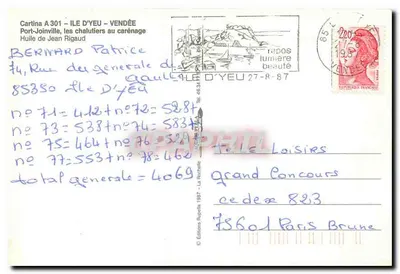 Cartina A 301 - ILE D'YEU - VENDÉE
Port-Joinville, les chalutiers au carénage
Huile de Jean Rigaud
BERNARD Patrice
74, Rue des generale de
gaulle
85350 Ile D'YEU
n° 71 = 412 + n° 72 = 528 +
n° 73 = 538 + n° 74 = 583 +
n° 75 = 464 + n° 76 =
n° 77 = 553 + n° 78 = 462
total generale = 4069
repos
lumière
beauté
ILE D'YEU 27-8-87
85
2,20
© Editions Rupella 1987 - La Rochelle
Tele Loisirs
grand Concours
cedex 823
75601 Paris Brune